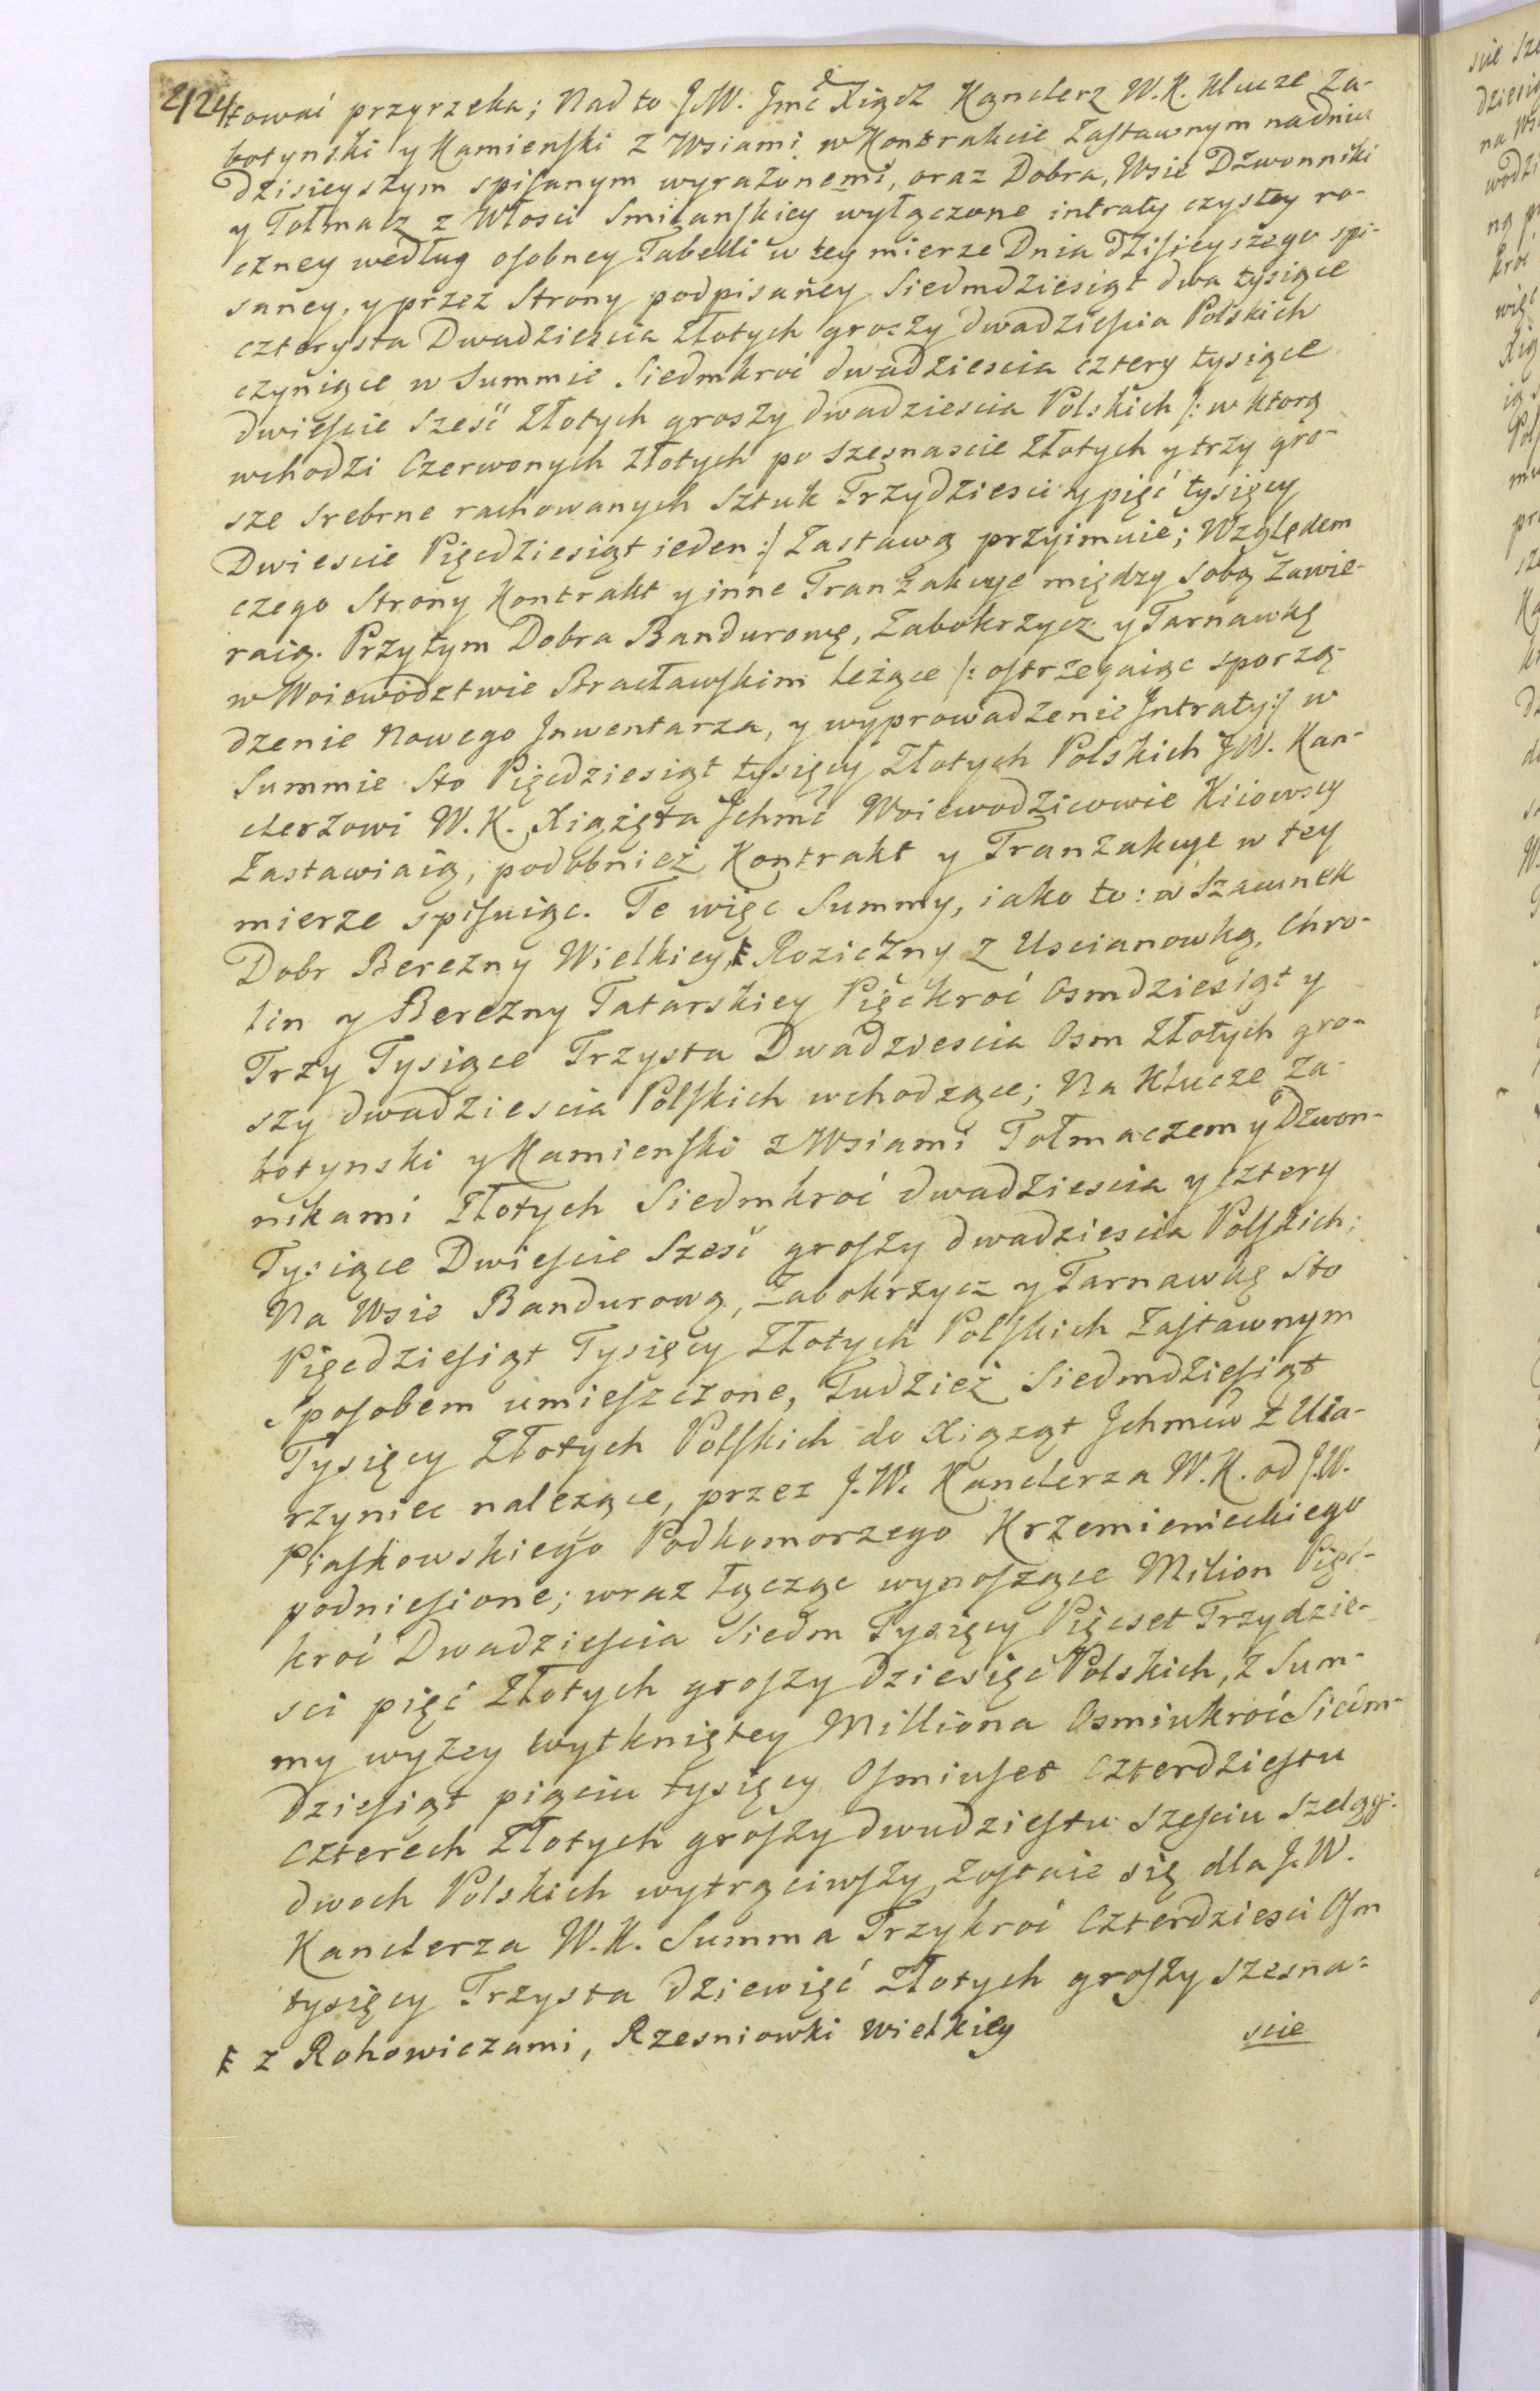 424
tować przyrzeka; Nad to J.W. Jmć Xiądz Kanclerz W.K. Klucze Za-
botynski y Kamieński z Wsiami w Kontrakcie Zastawnym na dniu
dzisieyszym spisanym wyrażonemi, oraz Dobra, Wsie Dzwonniki
y Tołmacz z Włości Smilanskiey wyłączone intraty czystey ro-
czney według osobney Tabelli w tey mierze Dnia dzisieyszego spi-
saney, y przez Strony podpisaney Siedmdziesiąt dwa tysiące
czterysta Dwadzieścia Złotych groszy dwadzieścia Polskich
czyniące w Summie Siedmkroć dwadziescia cztery tysiące
dwieście sześć Złotych groszy dwadziescia Polskich /: w ktorą
wchodzi Czerwonych Złotych po szesnascie Złotych y trzy gro-
sze srebrne rachowanych Sztuk Trzydziesci y pięć tysięcy
Dwiescie Pięcdziesiąt ieden :/ Zastawą przyimuie; Względem
czego Strony Kontrakt y inne Tranzakcye między sobą zawie-
raią. Przytym Dobra Bandurowę, Zabokrzycz y Tarnawkę
w Woiewodztwie Bracławskim leżące /: ostrzegaiąc sporzą-
dzenie Nowego Jnwentarza, y wyprowadzenie Jntraty :/ w
Summie Sto Pięcdziesiąt tysięcy Złotych Polskich J.W. Kan-
clerzowi W.K. Xiążęta Jchmć Woiewodzicowie Kiiowscy
Zastawiaią, podobnież Kontrakt y Tranzakcye w tey
mierze spisuiąc. Te więc Summy, iako to: w Szacunek
Dobr Berezny Wielkiey, ⱡ Roziczny z Uscianowką, Chro-
lin y Berezny Tatarskiey Pięćkroć Osmdziesiąt y
Trzy Tysiące Trzysta Dwadziescia Osm Złotych gro-
szy dwadziescia Polskich wchodzące; Na Klucze Za-
botynski y Kamieński z Wsiami Tołmaczem y Dzwon-
nikami Złotych Siedmkroć dwadziescia y cztery
Tysiące Dwieście Sześć groszy dwadziescia Polskich;
Na Wsie Bandurowę, Zabokrzycz y Tarnawkę Sto
Pięcdziesiąt Tysięcy Złotych Polskich Zastawnym
Sposobem umieszczone, Tudzież Siedmdziesiąt
Tysięcy Złotych Polskich do Xiążąt Jchmciów z Uła-
rzyniec należące, przez J.W. Kanclerza W.K. od J.W.
Piaskowskiego Podkomorzego Krzemienieckiego
podniesione; wraz łącząc wynoszące Milion Pięć-
kroć Dwadzieścia Siedm Tysięcy Pięcset Trzydzie-
sci pięć Złotych groszy dziesięć Polskich, z Sum-
my wyżey wytkniętey Milliona Osmiukroć Siedm-
dziesiąt pięciu tysięcy Osmiuset Czterdziestu
Czterech Złotych groszy dwudziestu sześciu szeląg:
dwoch Polskich wytrąciwszy, Zostaie się dla J.W.
Kanclerza W.K. Summa Trzykroć Czterdziesci Osm
tysięcy Trzysta dziewięć Złotych groszy szesna=
ⱡ z Rohowiczami, Rzesniowki Wielkiey
scie